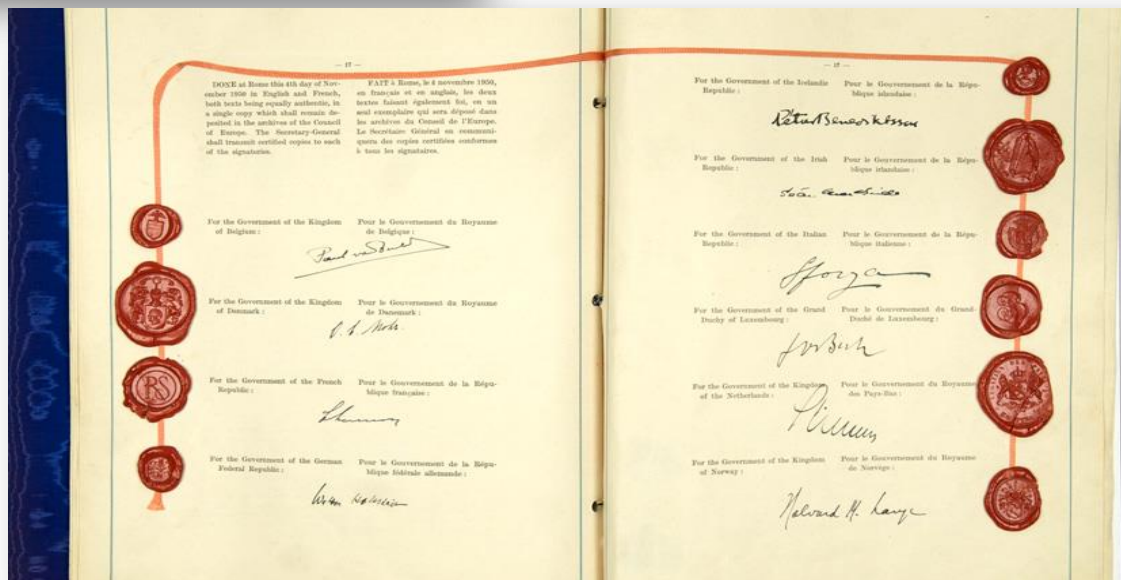 — 17 —
DONE at Rome this 4th day of Nov-
ember 1950 in English and French,
both texts being equally authentic, in
a single copy which shall remain de-
posited in the archives of the Council
of Europe. The Secretary-General
shall transmit certified copies to each
of the signatories.
FAIT à Rome, le 4 novembre 1950,
en français et en anglais, les deux
textes faisant également foi, en un
seul exemplaire qui sera déposé dans
les archives du Conseil de l'Europe.
Le Secrétaire Général en communi-
quera des copies certifiées conformes
à tous les signataires.
For the Government of the Kingdom
of Belgium :
Pour le Gouvernement du Royaume
de Belgique :
Paul van
For the Government of the Kingdom
of Denmark :
Pour le Gouvernement du Royaume
de Danemark :
For the Government of the French
Republic :
Pour le Gouvernement de la Répu-
blique française :
RS
For the Government of the German
Federal Republic :
Pour le Gouvernement de la Répu-
blique fédérale allemande :
For the Government of the Icelandic
Republic :
Pour le Gouvernement de la Répu-
blique islandaise :
For the Government of the Irish
Republic :
Pour le Gouvernement de la Répu-
blique irlandaise :
For the Government of the Italian
Republic :
Pour le Gouvernement de la Répu-
blique italienne :
Sforza
For the Government of the Grand
Duchy of Luxembourg :
Pour le Gouvernement du Grand-
Duché de Luxembourg :
For the Government of the Kingdom
of the Netherlands :
Pour le Gouvernement du Royaume
des Pays-Bas :
For the Government of the Kingdom
of Norway :
Pour le Gouvernement du Royaume
de Norvège :
Halvard M. Lange